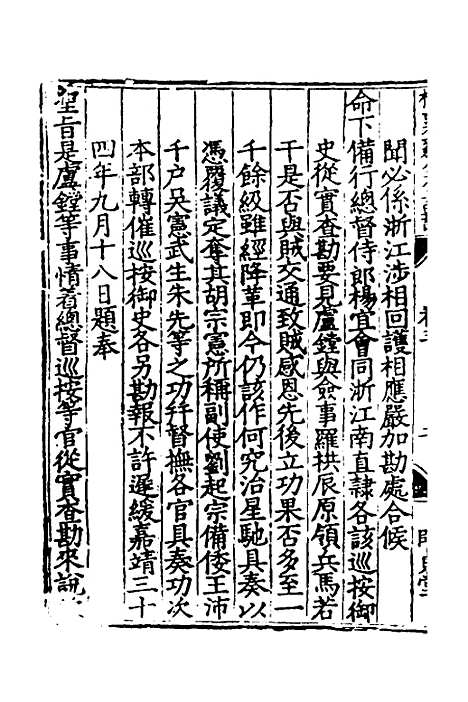 聞必係浙江涉相回護相應嚴加勘處合候
命下備行總督侍郎楊宜會同浙江南直隸各該巡按御
史從實查勘要見盧鏜與僉事羅拱辰原領兵馬若
干是否與賊交通致賊感恩先後立功果否多至一
千餘級雖經降革即今仍該作何究治星馳具奏以
憑覆議定奪其胡宗憲所稱副使劉起宗備倭王沛
千户吳憲武生朱先等之功并督撫各官具奏功次
本部轉催巡按御史各另勘報不許遲緩嘉靖三十
四年九月十八日題奉
聖旨是盧鏜等事情着總督巡按等官從實查勘來說